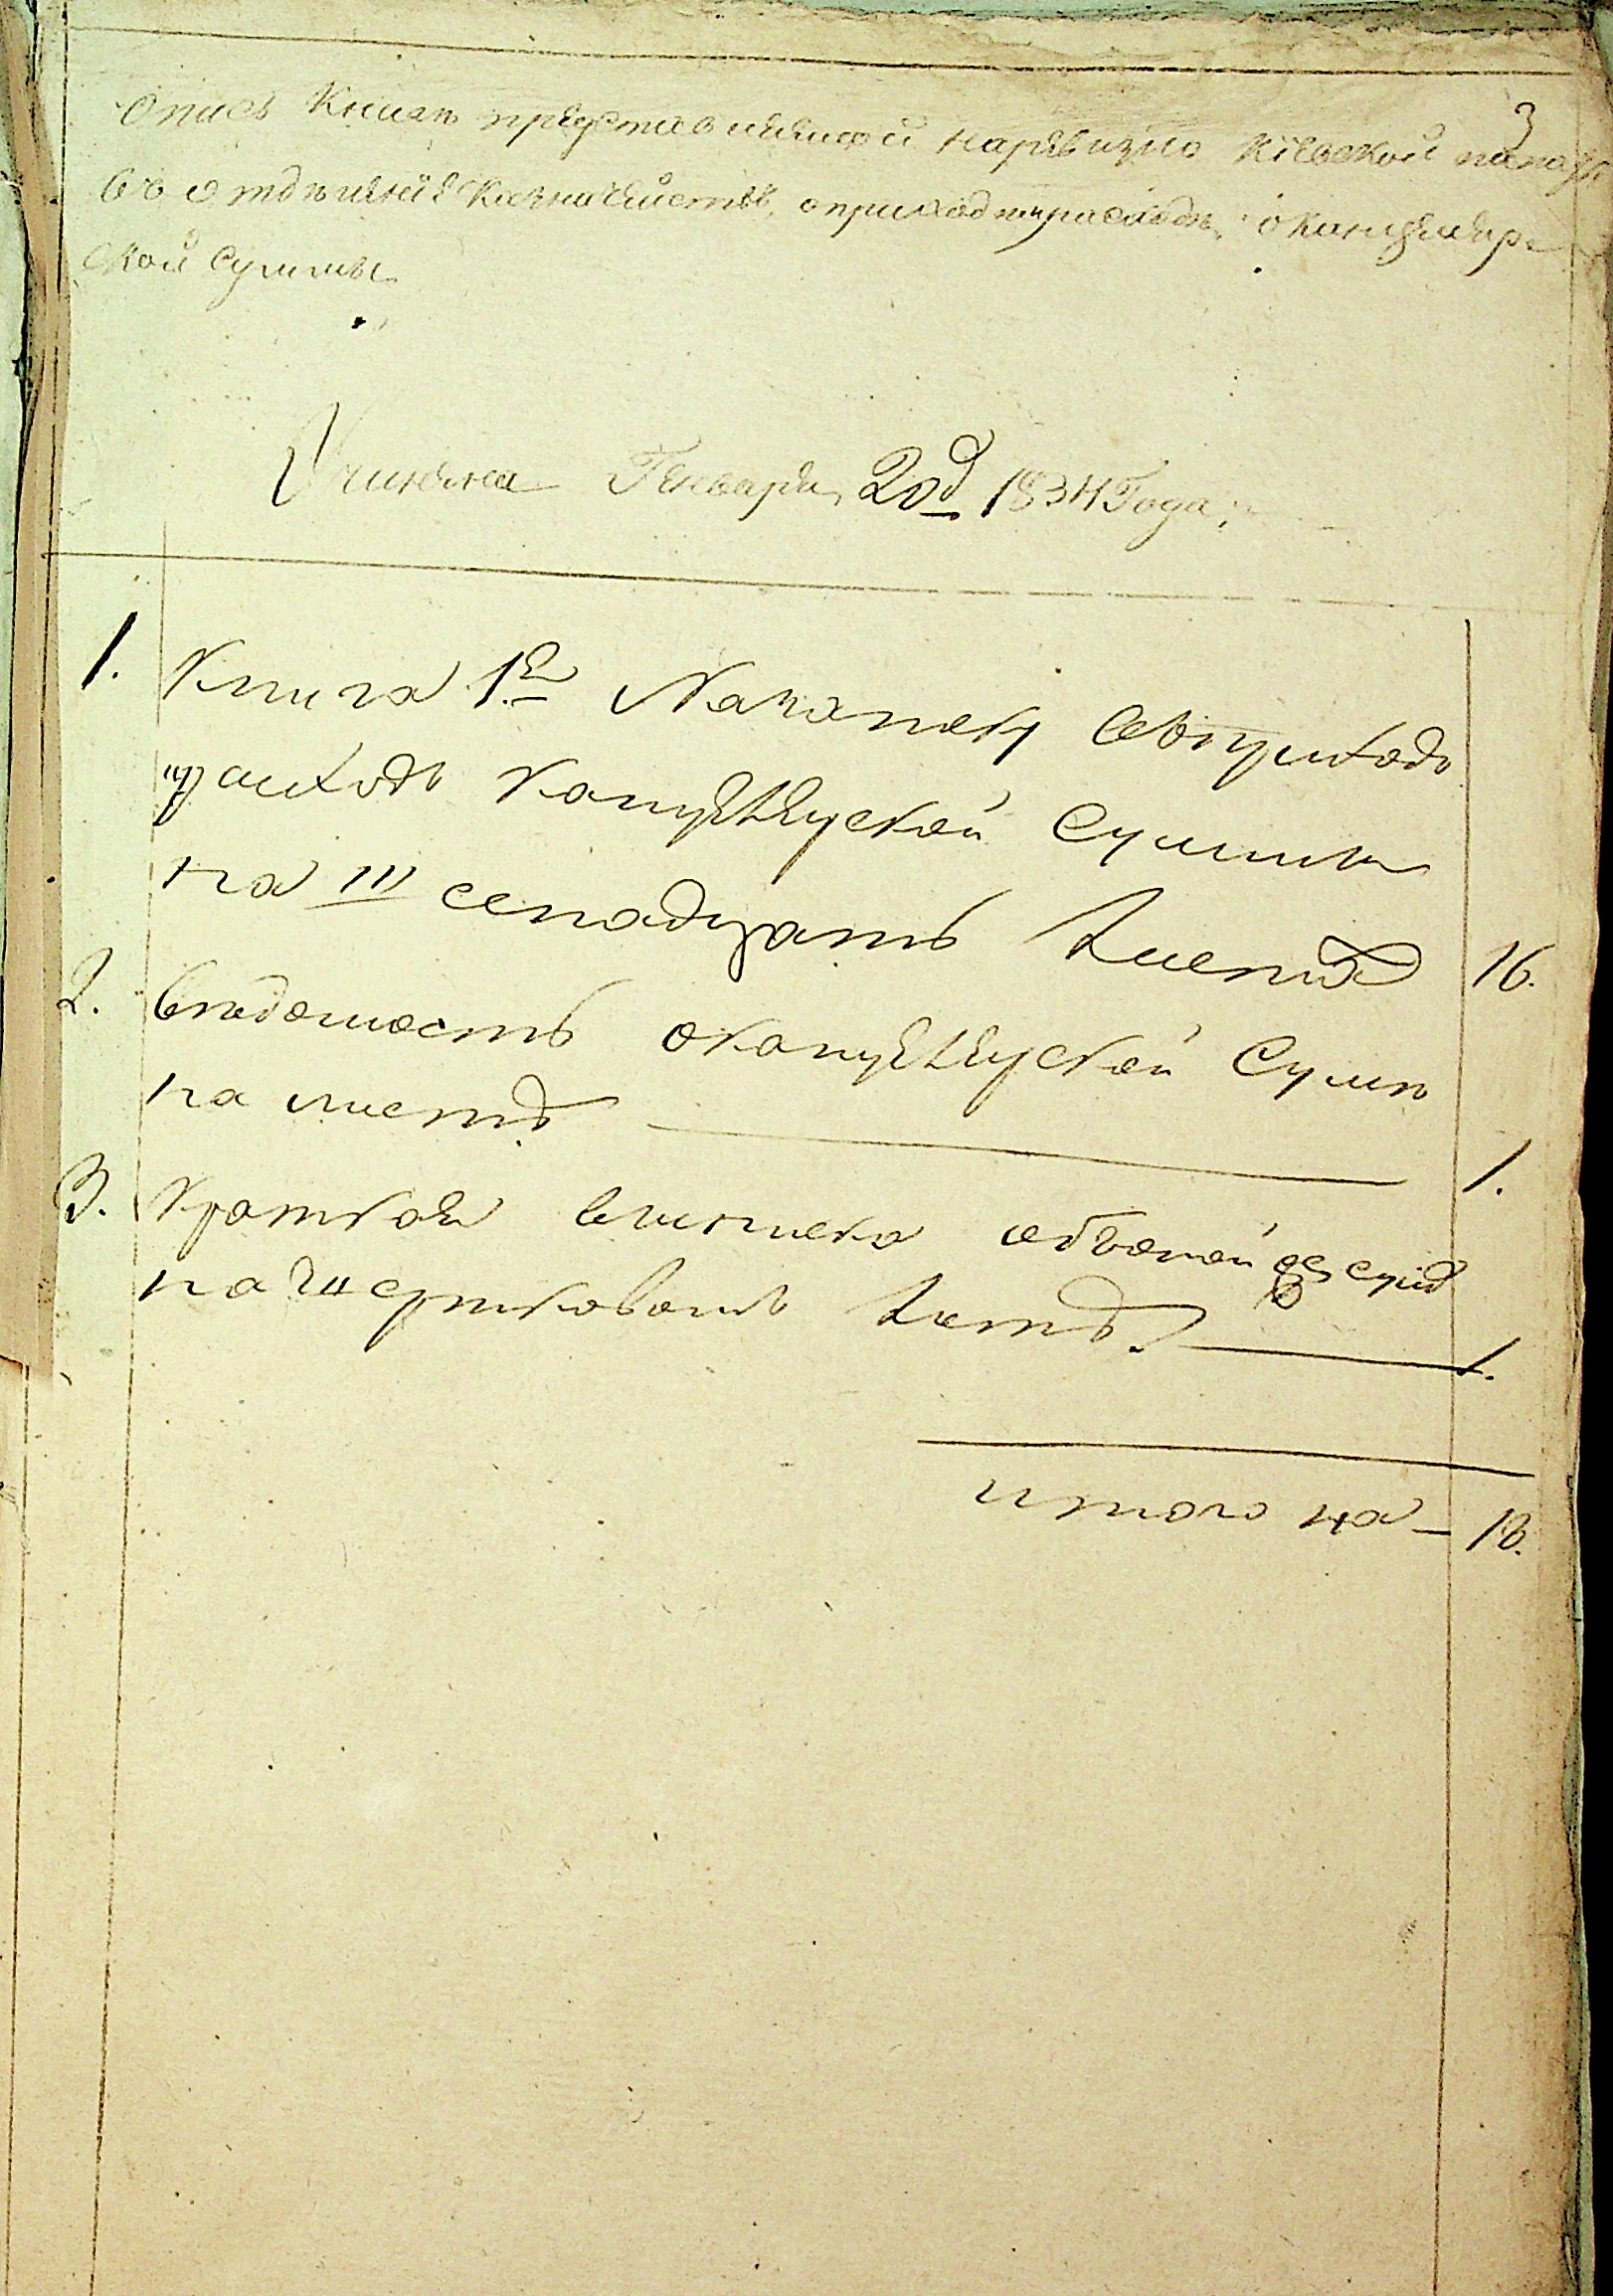 3
Опись Книгъ представленной наревизию Кіевской палаты
въ отдѣленiе Казначействъ, оприходѣ ирасходѣ, оканцеляр-
ской Суммы
Учинена Генваря 20д 1834 Года.
1. Книга 1я Nа записку въприходъ
ирасходъ Канцелярской Суммы
на шеснадцать листахъ 16.
2. Вѣдомость оканцелярской Суммѣ
на листѣ 1.
3. Краткая выписка обьоной
на листѣ 1.
итого на — 18.